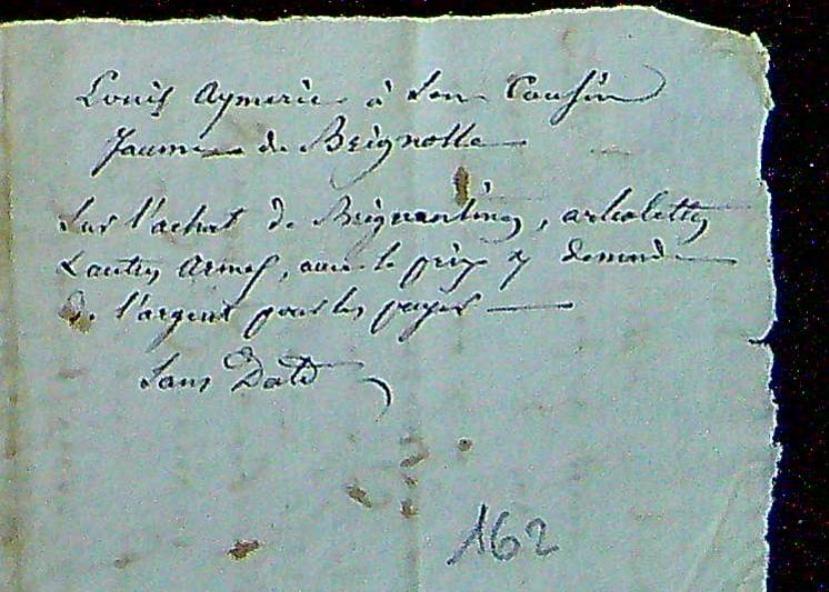 Louis Aymeric à Son Cousin
Jaume de Brignolle
Sur l'achat de Brigantines, arbalettes
&autres Armes, avec le prix & demande
de l'argent pour les payer
Sans Date
162